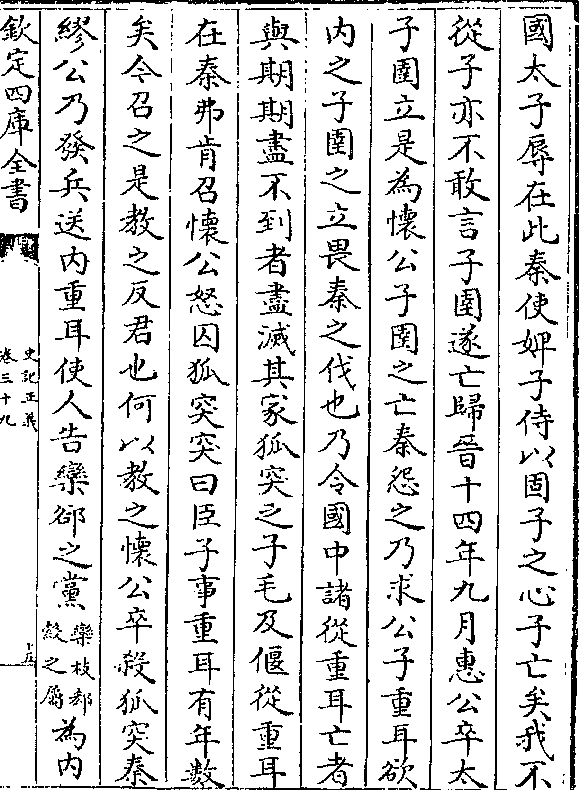 國太子辱在此秦使婢子侍以固子之心子亡矣我不
從子亦不敢言子圉遂亡歸晉十四年九月惠公卒太
子圉立是為懷公子圉之亡秦怨之乃求公子重耳欲
内之子圉之立畏秦之伐也乃令國中諸從重耳亡者
與期期盡不到者盡滅其家狐突之子毛及偃從重耳
在秦弗肯召懷公怒囚狐突突曰臣子事重耳有年數
矣今召之是教之反君也何以教之懷公卒殺狐突秦
繆公乃發兵送内重耳使人告欒郤之黨欒枝郤縠之屬為内
欽定四庫全書
史記正義
卷三十九
十五